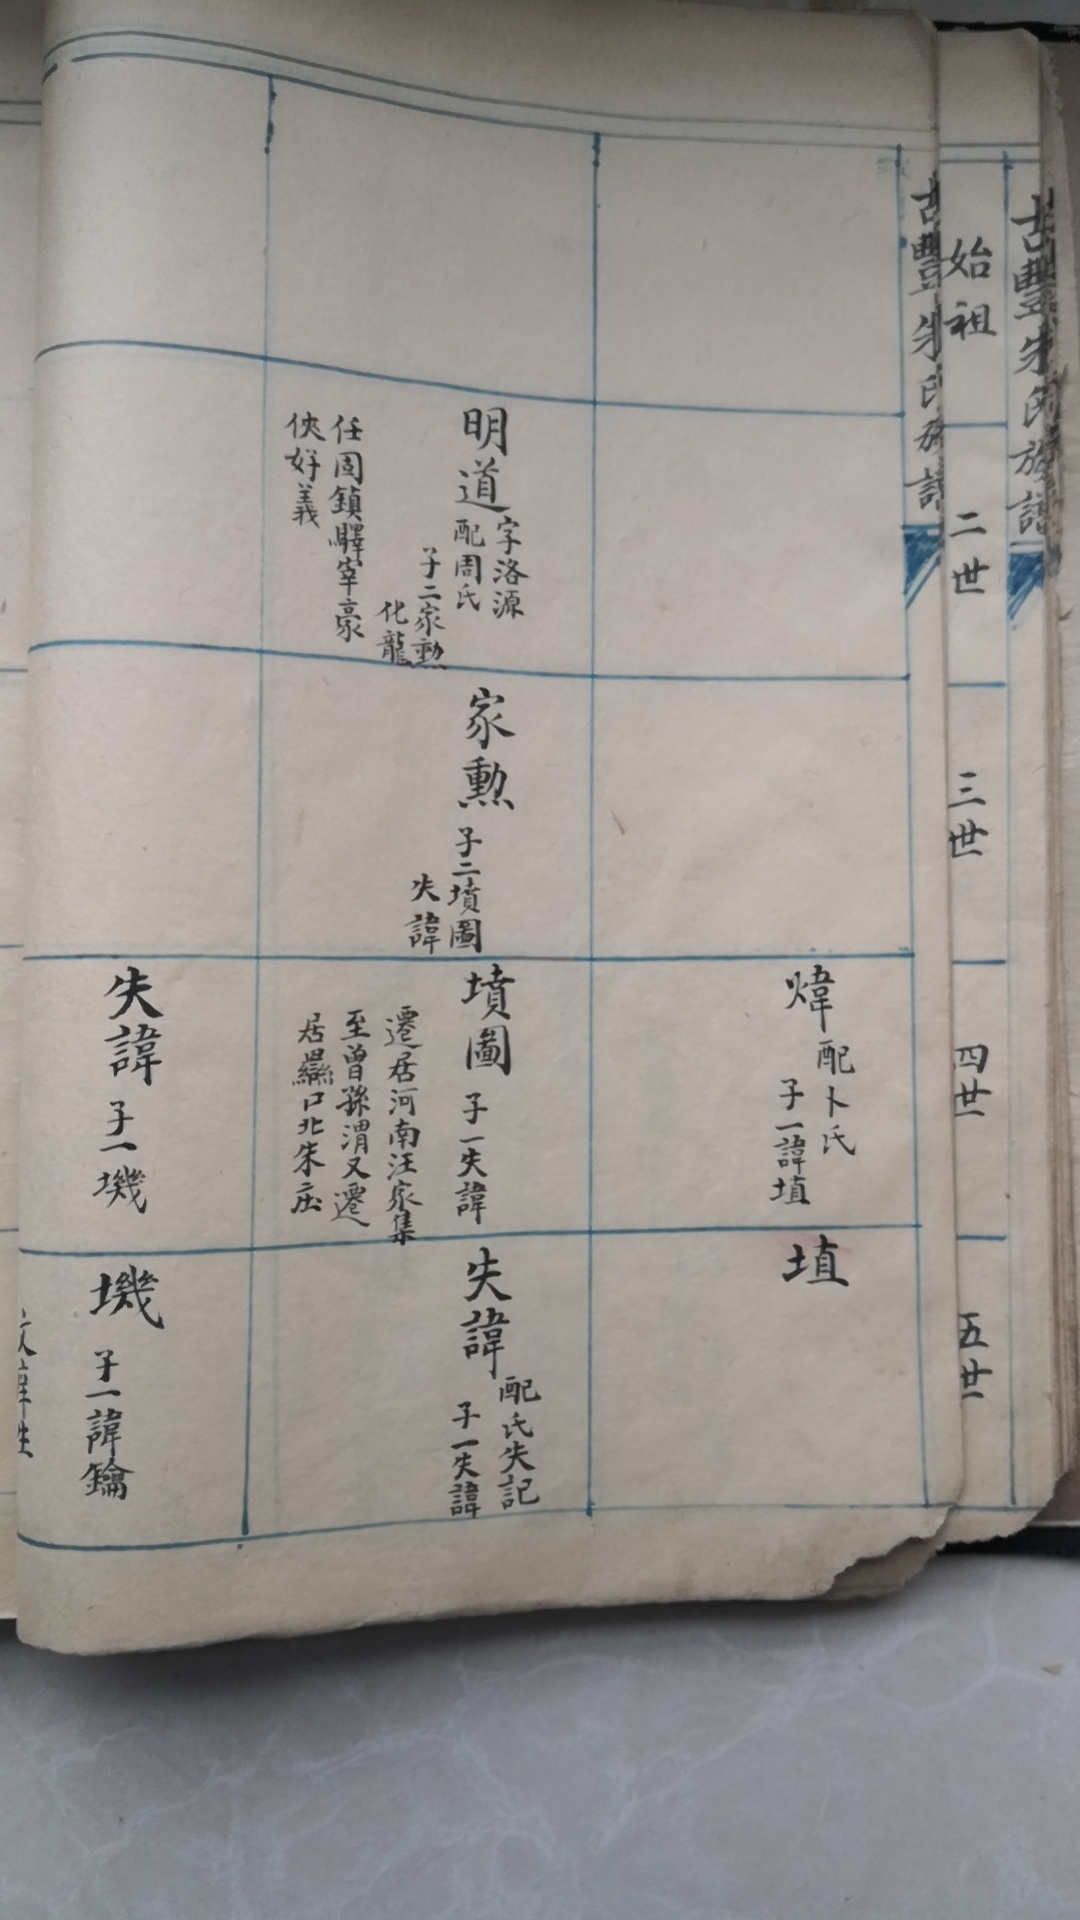 古豐朱氏族譜
始祖
二世
三世
四世
五世
古豐朱氏族譜
煒
配卜氏
子一諱埴
埴
明道
字洛源
配周氏
子二家勲
化龍
任固鎮驛宰豪
俠好義
家勲
子二墳圖
失諱
墳圖
子一失諱
遷居河南汪家集
至曾孫渭又遷
居口北朱庄
失諱
配氏失記
子一失諱
失諱
子一墢
墢
子一諱鑰